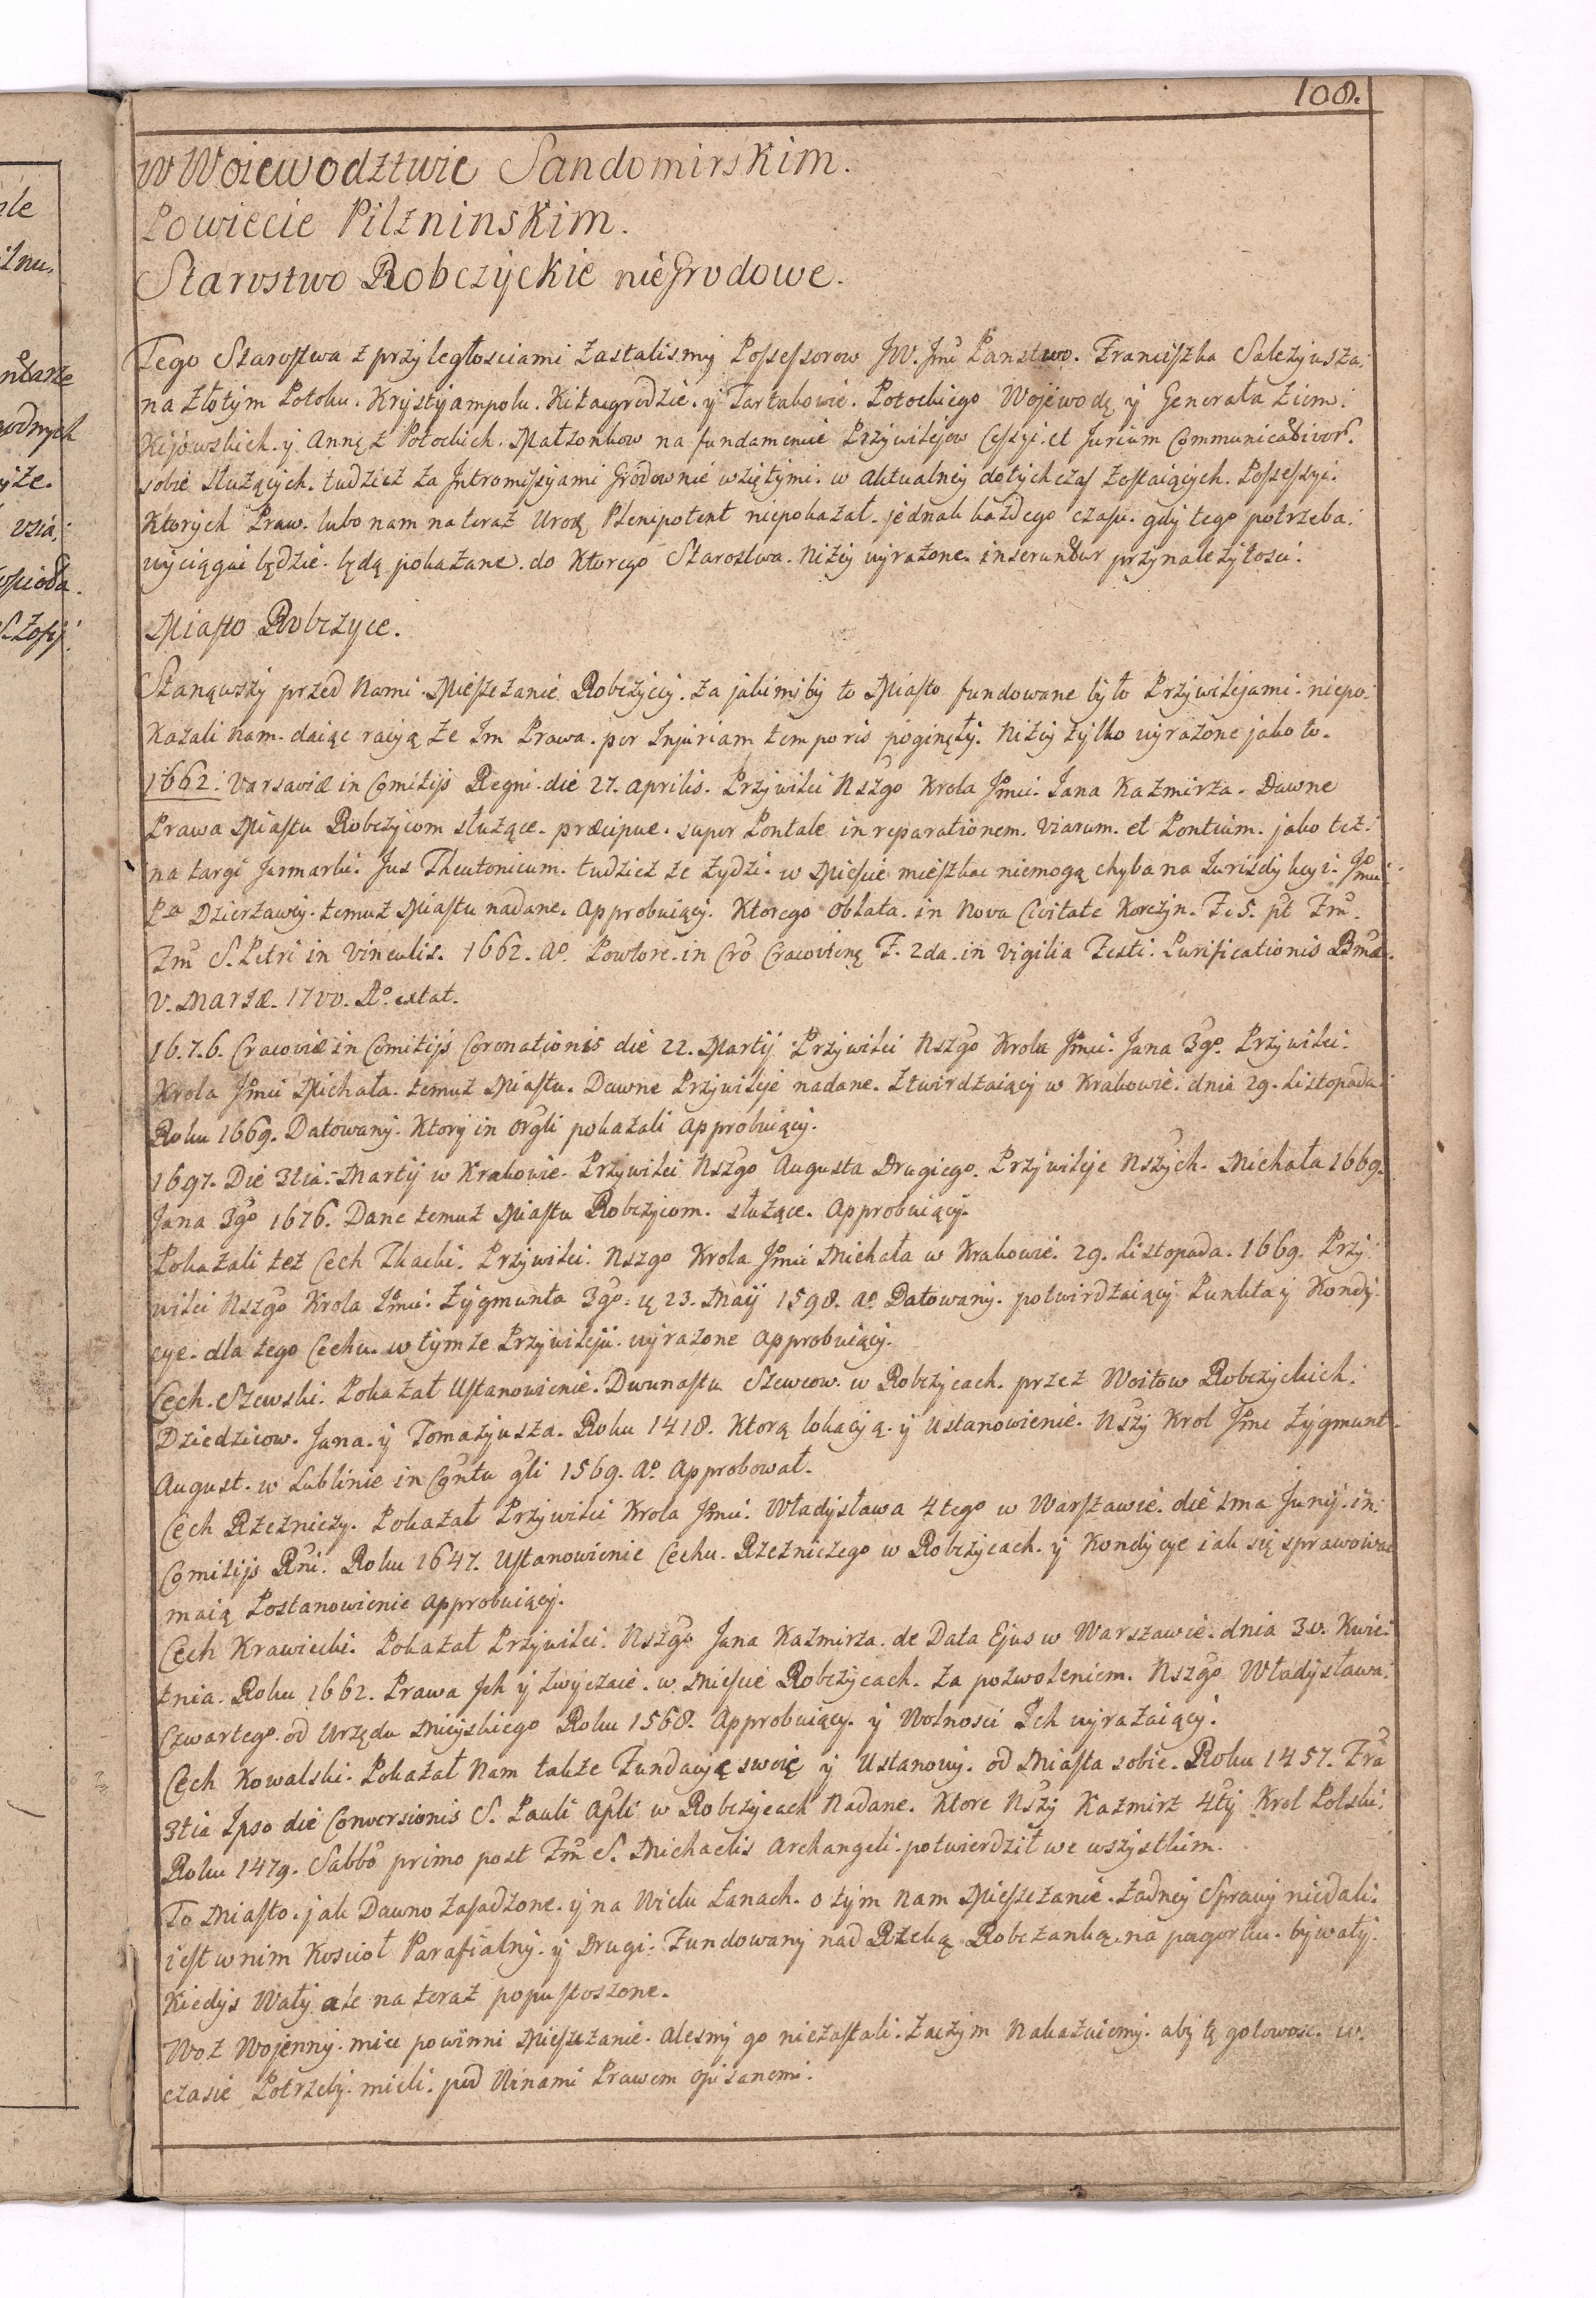 108.
w Woiewodztwie Sandomirskim.
Powiecie Pilzninskim.
Starostwo Robczyckie nie Grodowe.
Tego Starostwa z przyległosciami zastalismy Possessorow JW. Jmć Panstwo. Franciszka Salezyusza:
na Złotym Potoku. Krystyampolu. Kitaygrodzie. y Tartakowie. Potockiego Wojewodę y Generała Ziem:
Kijowskich. y Annę z Potockich. Małzonkow na fundamencie Przywilejow Cessyi. et Jurium Communicativor.
sobie słuzących. tudziez za Intromissyami Grodownie wziętymi. w aktualney dotychczas zostaiących. Possessyi.
Ktorych Praw. lubo nam na teraz Urodz Plenipotent niepokazał. jednak kazdego czasu. gdy tego potrzeba:
wyciągac będzie. będą pokazane. do Ktorego Starostwa. nizey wyrazone. inseruntur przynalezytosci.
Miasto Robczyce.
Stanąwszy przed Nami. Mieszczanie Robczyccy. za jakimiby to Miasto fundowane było Przywilejami. niepo:
kazali nam. daiąc racyą ze Im Prawa. per Injuriam temporis poginęły. nizey tylko wyrazone jako to.
1662. Varsaviæ in Comitijs Regni. die 27. aprilis. Przywiley Nszgo Krola Jmci. Jana Kazmirza. Dawne
Prawa Miastu Robczycom słuzące. præcipue. super Pontale in reparationem. Viarum. et Pontium. jako tez:
na targi Jarmarki. Jus Theutonicum. tudziez ze Zydzi. w Miescie mieszkac niemogą chyba na Jurisdykcyi. Jmci
Pa Dzierzawcy. temuz Miastu nadane. Approbuiący. Ktorego oblata. in Nova Civitate Korczyn. F. 5. pt Fm.
Fm S. Petri in Vinculis. 1662. Ao. Powtore. in Cro Cracovien F. 2da. in Vigilia Festi. Purificationis Bmæ.
V. Mariæ. 1700. Ao. extat.
16.7.6. Cracoviæ in Comitijs Coronationis die 22. Martij Przywiley Nszgo Krola Jmci. Jana 3go. Przywiley.
Krola Jmci Michała. temuz Miastu. Dawne Przywileje nadane. Ztwirdzaiący w Krakowie. dnia 29. Listopada
Roku 1669. Datowany. Ktory in orgli pokazali approbuiący.
1697. Die 3tia. Martij w Krakowie. Przywiley Nszgo Augusta Drugiego. Przywileje Nszych. Michała 1669.
Jana 3go 1676. Dane temuz Miastu Robczycom. słuzące. Approbuiący.
Pokazali tez Cech Tkacki. Przywiley. Nszgo Krola Jmci Michała w Krakowie. 29. Listopada. 1669. Przy:
wiley Nszgo Krola Jmci. Zygmunta 3go. 23. Maij 1598. ao Datowany. potwirdzaiący Punkta y Kondy:
cye. dla tego Cechu. w tymze Przywileju. wyrazone approbuiący.
Cech. Szewski. Pokazał Ustanowienie. Dwunastu Szewcow. w Robczycach. przez Woitow Robczyckich.
Dziedzicow. Jana. y Tomazyusza. Roku 1418. Ktorą lokacyą. y Ustanowienie. Nszy Krol Jmc Zygmunt.
August. w Lublinie in Cntu gli 1569. Ao Approbował.
Cech Rzezniczy. Pokazał Przywiley Krola Jmci. Władysława 4tego w Warszawie. die 1ma Junij. in:
Comitijs Rni. Roku 1647. Ustanowienie Cechu. Rzezniczego w Robczycach. y Kondycye iak się sprawowac
maią Postanowienie approbuiący.
Cech Krawiecki. Pokazał Przywiley. Nszgo Jana Kazmirza. de Data Ejus w Warszawie. dnia 30. Kwie:
tnia. Roku 1662. Prawa Ich y zwyczaie. w Miescie Robczycach. za pozwoleniem. Nszgo Władysława.
Czwartego. od Urzędu Mieyskiego Roku 1568. Approbuiący. y Wolnosci Ich wyrazaiący.
Cech Kowalski. Pokazał Nam takze Fundacyę swoię y Ustanowy. od Miasta sobie. Roku 1457. Fra
3tia Ipso die Conversionis S. Pauli Apli w Robczycach Nadane. Ktore Nszy Kazmirz 4ty Krol Polski.
Roku 1479. Sabbo primo post Fm S. Michaelis Archangeli. potwierdził we wszystkim.
To Miasto. jak Dawno zasadzone. y na Wielu Łanach. o tym nam Mieszczanie. zadney Sprawy niedali.
iest w nim Kosciol Parafialny. y Drugi. Fundowany nad Rzeką Robczanką. na pagorku. bywały.
Kiedys Wały ale na teraz popustoszone.
Woz Wojenny. miec powinni Mieszczanie. alesmy go niezastali. zaczym nakazuiemy. aby tę gotowosc. w.
czasie Potrzeby. mieli. pod Winami Prawem opisanemi.